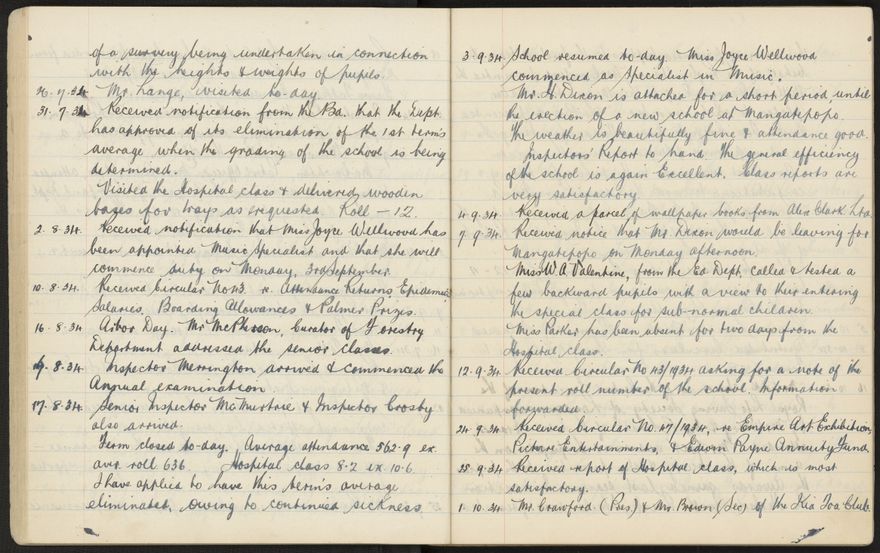 of a survey being undertaken in connection
with the heights & weights of pupils.
26.7.34 Mr. Lange, visited to-day
31.7.34 Received notification from the Bd. that the Dept.
has approved of its elimination of the 1st term's
average when the grading of the school is being
determined.
Visited the Hospital class & delivered wooden
bases for trays as requested Roll - 12.
2.8.34. Received notification that Miss Joyce Wellwood has
been appointed Music Specialist and that she will
commence duty on Monday, 3rd September.
10.8.34. Received circular No 43. re Attendance Returns, Epidemics
Salaries, Boarding Allowances & Palmer Prizes.
16.8.34 Arbor Day. Mr McPherson, Curator of Forestry
Department addressed the senior classes.
8.34. Inspector Merrington arrived & commenced the
Annual examination
17.8.34. Senior Inspector McMurtrie & Inspector Crosby
also arrived.
Term closed to-day. Average attendance 562.9 ex
aver. roll 636 Hospital class 8.2 ex 10.6
I have applied to have this term's average
eliminated, owing to continued sickness
3.9.34. School resumed to-day. Miss Joyce Wellwood
commenced as Specialist in Music.
Mr. H. Dixon is attached for a short period, until
the erection of a new school at Mangatepopo.
The weather is beautifully fine & attendance good.
Inspectors' Report to hand. The general efficiency
of the school is again Excellent. Class reports are
very satisfactory
4.9.34. Received a parcel of wallpaper books from Alex Clark Ltd.
7.9.34. Received notice that Mr. Dixon would be leaving for
Mangatepopo on Monday afternoon.
Miss W.A. Valentine, from the Ed. Dept. called & tested a
few backward pupils with a view to their entering
the special class for sub-normal children.
Miss Parker has been absent for two days from the
Hospital class.
12.9.34. Received circular No 43/1934 asking for a note of the
present roll number of the school. Information
forwarded
24.9.34. Received Circular No. 47/1934, re Empire Art Exhibition,
Picture Entertainments, & Edwin Payne Annuity Fund.
25.9.34. Received report of Hospital class, which is most
satisfactory.
1.10.34. Mr. Crawford (Pres) & Mr. Brown (Sec) of the Kia Toa Club